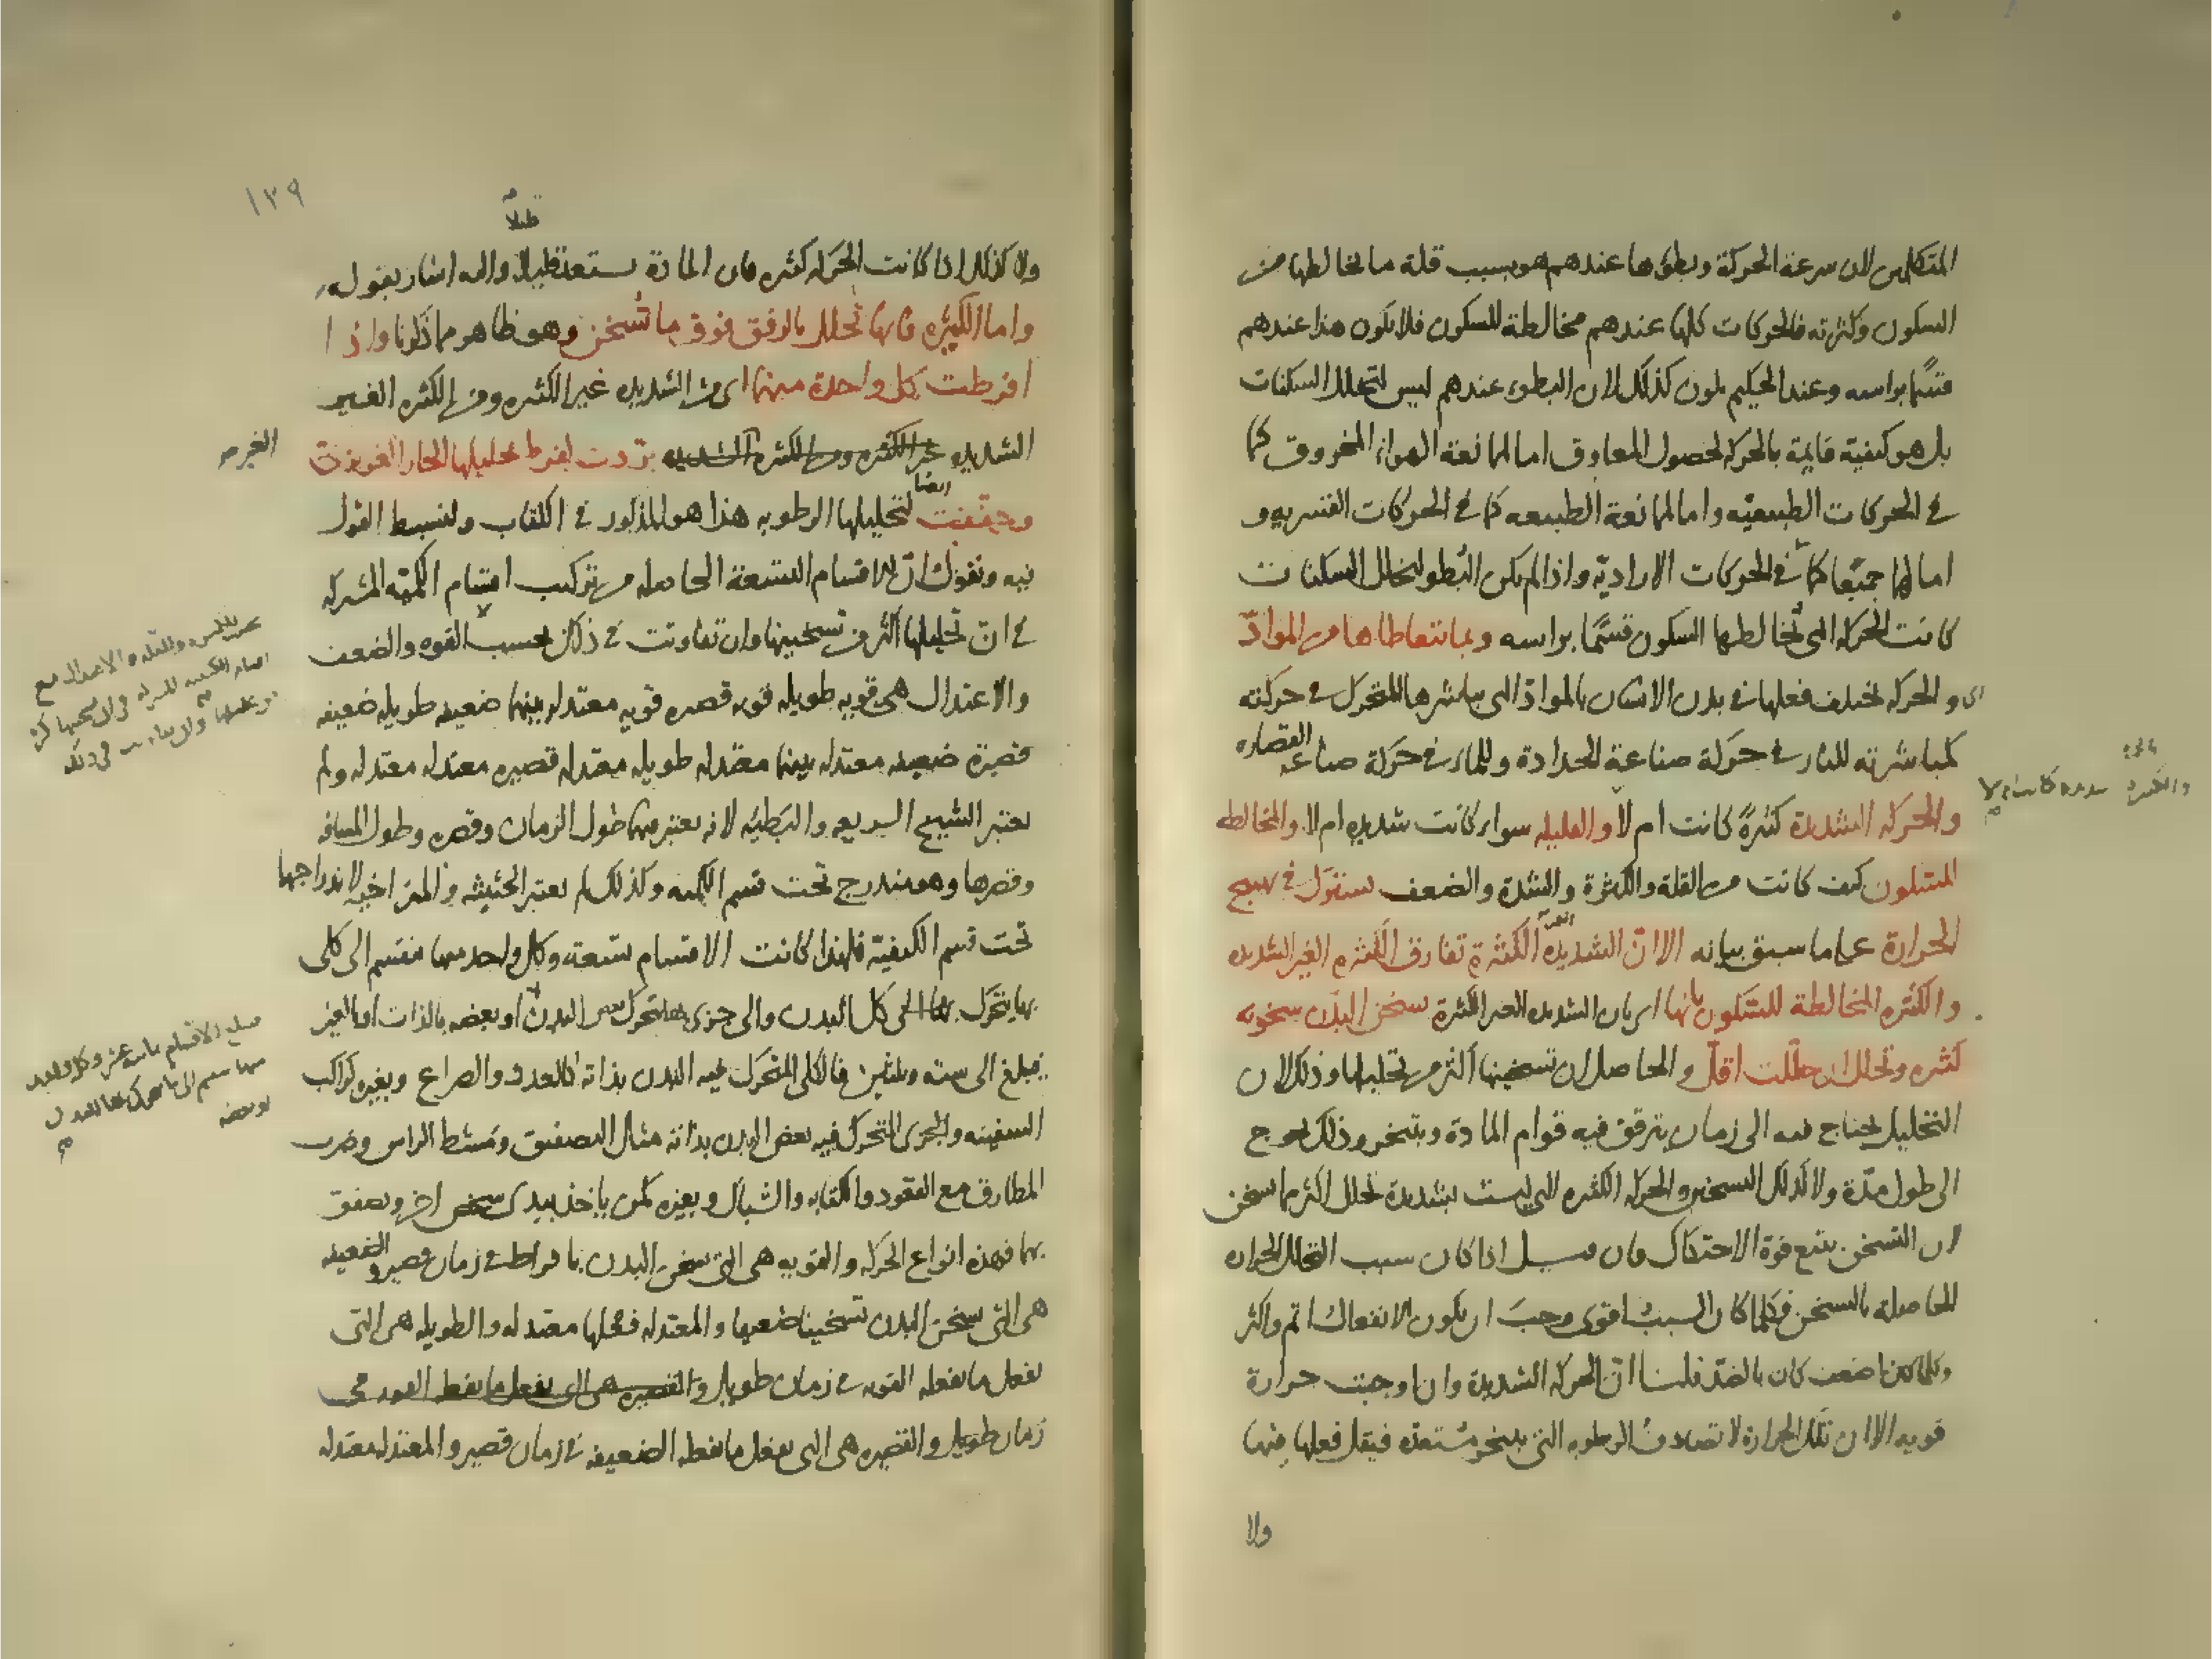 المتكلمين لان سرعة الحركة وبطؤها عندهم هو بسبب قلة ما يخالطها من
السكون وكثرته فالحركات كلها عندهم مخالطة للسكون فلا يكون هذا عندهم
قسما براسه وعند الحكيم يكون كذلك لان البطوء عندهم ليس لتخلل السكنات
بل هو كيفية قايمة بالحركة لحصول المعاوق اما لممانعة الهواء المخروق كما
في الحركات الطبيعيه واما لممانعة الطبيعه كما في الحركات القسريه و
اما لهما جميعا كما في الحركات الاراديه واذا لم يكن البطو لتخلل السكنات
كانت الحركه التى يخالطها السكون قسما براسه وبما تتعاطاها من المواد
اى والحركه يختلف فعلها فى بدن الانسان بالمواد التى يباشرها المتحرك فى حركته
كمباشرته للنار فى حركة صناعة الحدادة وللماء فى حركة صناعة القصاره
والحركه الشديدة كثيرة كانت ام لا والقليله سواء كانت شديده ام لا والمخالطه
للسكون كيف كانت من القلة والكثرة والشدة والضعف تشترك فى تهييج
الحرارة على ما سبق بيانه الا ان الشديده الغير الكثيرة تفارق الكثيره الغير الشديده
والكثيره المخالطة للسكون بانها اى بان الشديده الغير الكثيرة تسخن البدن سخونه
كثيره وتحلل ان حللت اقل والحاصل ان تسخينها اكثر من تحليلها وذلك لان
التحليل يحتاج فيه الى زمان يترقق فيه قوام المادة ويتبخر وذلك يحوج
الى طول مدة ولا كذلك التسخين والحركه الكثيره التى ليست بشديدة تحلل اكثر مما تسخن
لان التسخن يتبع قوة الاحتكاك فان قيل اذا كان سبب التحلل الحراره
الحاصلة بالتسخن فكلما كان السبب اقوى وجب ان يكون الانفعال اتم واكثر
وكلما كان اضعف كان بالضد قلنا ان الحركه الشديدة وان اوجبت حرارة
قويه الا ان تلك الحرارة لا تصادف الرطوبه التى تتبخر مستعده فيقل فعلها فيها
ولا
١٣٩
ولا كذلك اذا كانت الحركه كثيره فان المادة تستعد قليلا قليلا واليه اشار بقوله
واما الكثيره فانها تحلل بالرفق فوق ما تسخن وهو ظاهر مما ذكرنا واذا
افرطت كل واحدة منهما اى من الشديده غير الكثيره ومن الكثيره الغير
الشديده بردت لفرط تحليلها الحار الغريزى
وجففت ايضا لتحليلها الرطوبه هذا هو المذكور فى الكتاب ولنبسط القول
فيه ونقول ان الاقسام التسعة الحاصله من تركيب اقسام الكميه المشتركه
فى ان تحليلها اكثر من تسخينها وان تفاوتت فى ذلك بحسب القوه والضعف
والاعتدال هى قويه طويله قويه قصيره قويه معتدله بينهما ضعيفه طويله ضعيفه
قصيرة ضعيفه معتدله بينهما معتدله طويله معتدله قصيره معتدله معتدله ولم
يعتبر الشيخ السريعه والبطيئه لانه يعتبر فيهما طول الزمان وقصره وطول المسافه
وقصرها وهو مندرج تحت قسم الكميه وكذلك لم يعتبر الحثيثه والمتراخيه لاندراجها
تحت قسم الكيفيه فلهذا كانت الاقسام تسعة وكل واحد منها منقسم الى كلى
يتحرك بها كل البدن والى جزى يتحرك بعض البدن او بعضه بالذات او بالغير
فيبلغ الى سته وثلثين فالكلى المتحرك فيه البدن بذاته كالعدو والصراع وبغيره كراكب
السفينه والجزى المتحرك فيه بعض البدن بذاته مثل التصفيق ومشط الراس وضرب
المطارق مع القعود والكتابه والشيال وبغيره كمن ياخذ بيدى شخص اخر ويصفق
بهما فهذه انواع الحركه والقويه هى التى تسخن البدن بافراط فى زمان قصير والضعيفه
هى التى تسخن البدن تسخينا ضعيفا والمعتدله فعلها معتدل والطويله هى التى
تفعل ما يفعله القويه فى زمان طويل والقصيره هى التى تفعل ما يفعله القويه فى
زمان طويل والقصيره هى التى تفعل ما يفعله الضعيفه فى زمان قصير والمعتدله معتدله